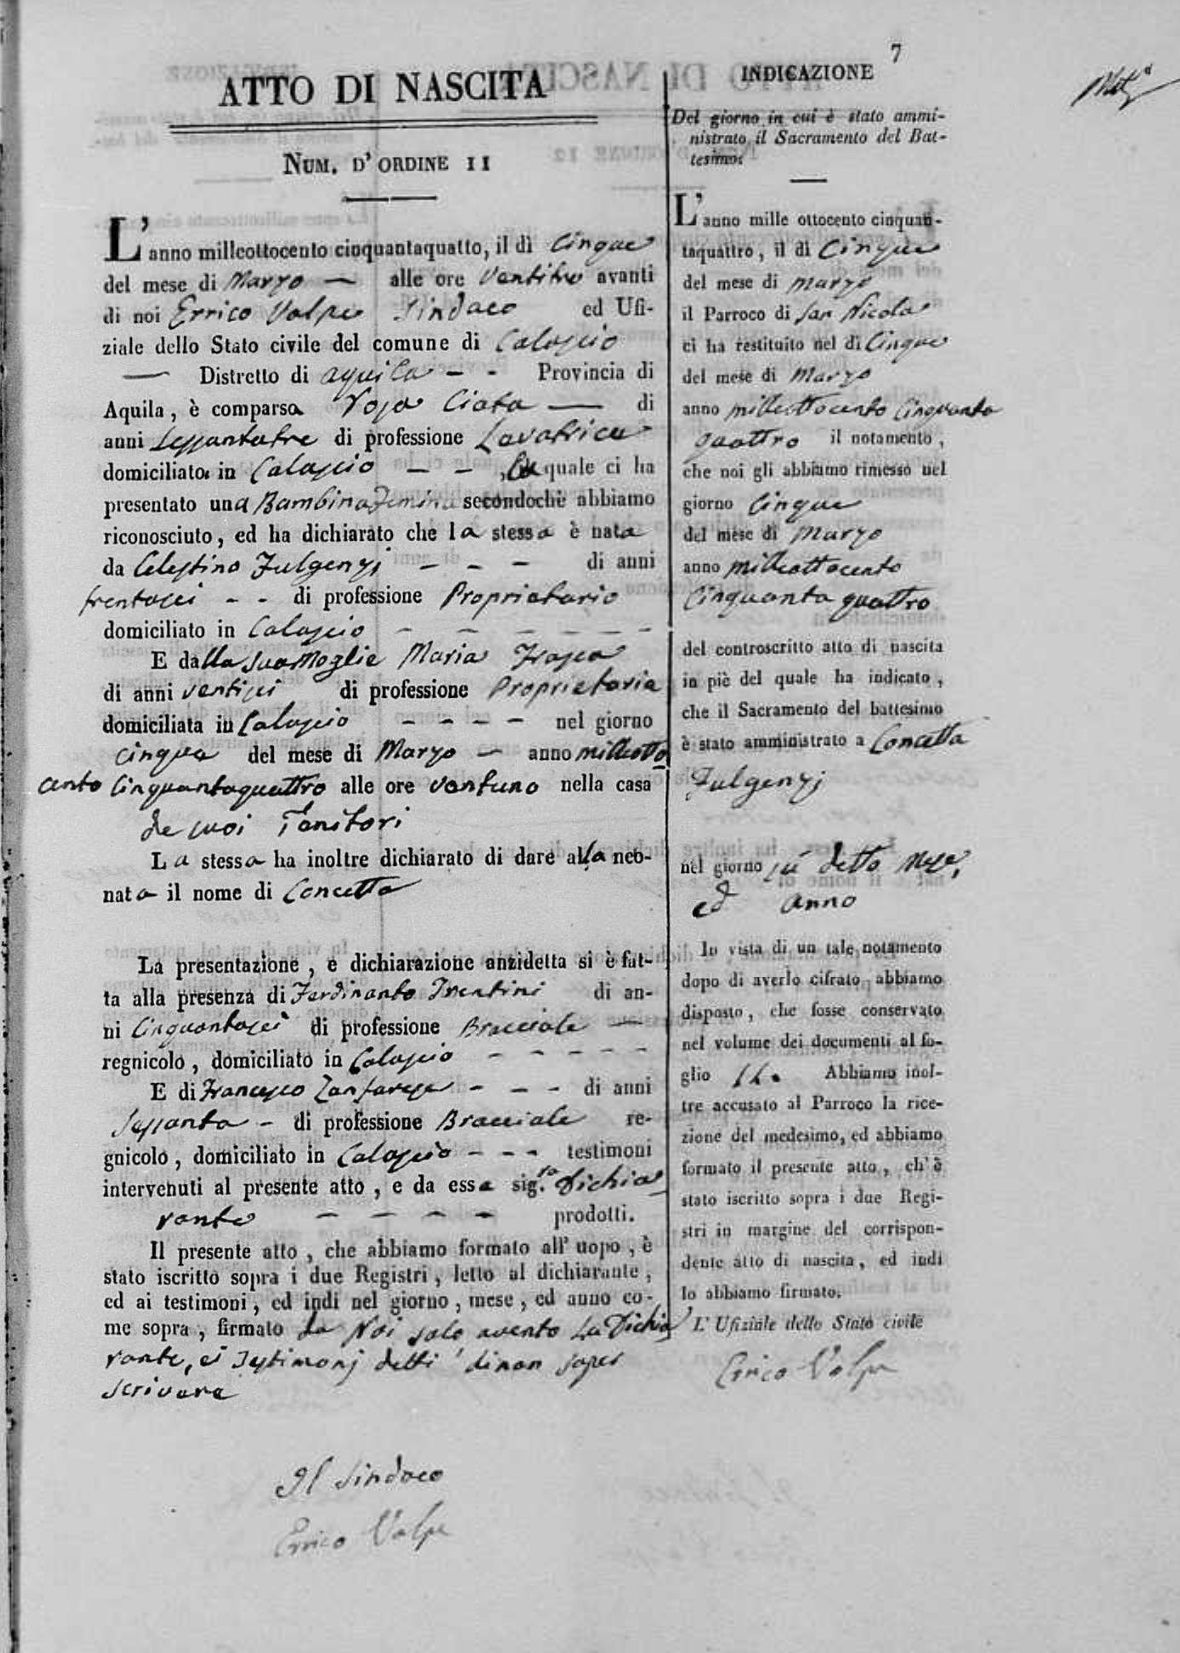 7
ATTO DI NASCITA
NUM. D' ORDINE 11
L'anno milleottocento cinquantaquatto, il dì Cinque
del mese di Marzo — alle ore ventitre avanti
di noi Errico Volpe Sindaco ed Ufi-
ziale dello Stato civile del comune di Calascio
— Distretto di aquila - - Provincia di
Aquila, è comparsa Rosa Ciata — di
anni Sessantatre di professione Lavatrice
domiciliata in Calascio - - , La quale ci ha
presentato una Bambina Femina secondochè abbiamo
riconosciuto, ed ha dichiarato che la stessa è nata
da Celestino Fulgenzj - - - di anni
trentasei - - di professione Proprietario
domiciliato in Calascio - - - - - -
E dalla sua Moglie Maria Frasca
di anni ventisei di professione Proprietaria
domiciliata in Calascio - - - - nel giorno
cinque del mese di Marzo — anno milleotto
cento Cinquantaquattro alle ore ventuno nella casa
de suoi Genitori
La stessa ha inoltre dichiarato di dare alla neo-
nata il nome di Concetta
La presentazione, e dichiarazione anzidetta si è fat-
ta alla presenza di Ferdinanto Trentini di an-
ni Cinquantasei di professione Bracciale —
regnicolo, domiciliato in Calascio - - - - -
E di Francesco Zanfarese - - - di anni
Sessanta - di professione Bracciale re-
gnicolo, domiciliato in Calascio - - - testimoni
intervenuti al presente atto, e da essa sig.ra Dichia
rante - - - - prodotti.
Il presente atto, che abbiamo formato all' uopo, è
stato iscritto sopra i due Registri, letto al dichiarante,
ed ai testimoni, ed indi nel giorno, mese, ed anno co-
me sopra, firmato da Noi solo avento La Dichia
rante, ei Testimonj detti dinon saper
scrivere
Il Sindaco
Errico Volpe
INDICAZIONE
Del giorno in cui è stato ammi-
nistrato il Sacramento del Bat-
tesimo.
L'anno mille ottocento cinquan-
taquattro, il dì Cinque
del mese di Marzo
il Parroco di San Nicola
ci ha restituito nel dì Cinque
del mese di Marzo
anno milleottocento Cinquanta
quattro il notamento,
che noi gli abbiamo rimesso nel
giorno Cinque
del mese di Marzo
anno milleottocento
Cinquanta quattro
del controscritto atto di nascita
in piè del quale ha indicato,
che il Sacramento del battesimo
è stato amministrato a Concetta
Fulgenzj
nel giorno su detto Mese,
ed anno
In vista di un tale notamento
dopo di averlo cifrato, abbiamo
disposto, che fosse conservato
nel volume dei documenti al fo-
glio 11. Abbiamo inol-
tre accusato al Parroco la rice-
zione del medesimo, ed abbiamo
formato il presente atto, ch'è
stato iscritto sopra i due Regi-
stri in margine del corrispon-
dente atto di nascita, ed indi
lo abbiamo firmato.
L' Ufiziale dello Stato civile
Errico Volpe